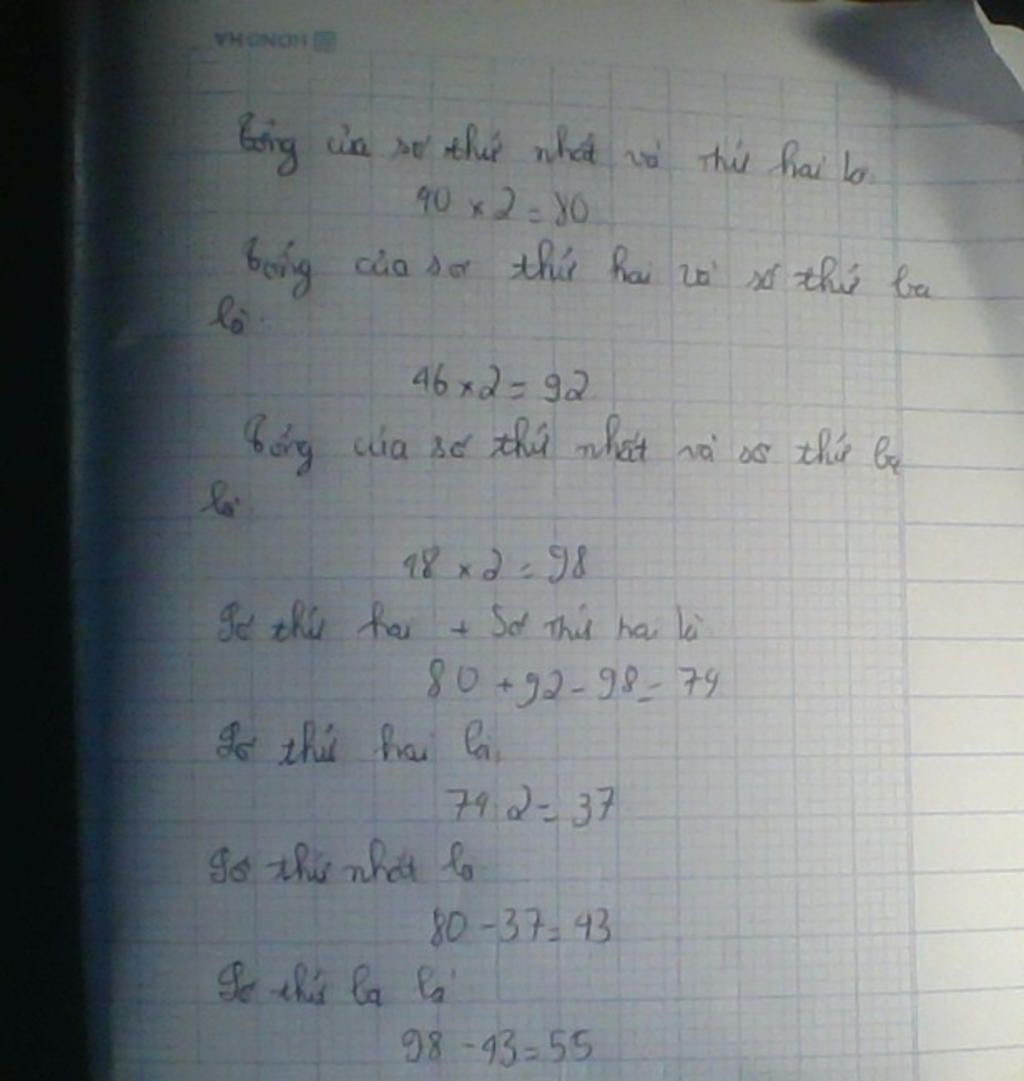 HONG HA
Tổng của số thứ nhất và thứ hai là.
40 × 2 = 80
Tổng của số thứ hai và số thứ ba
là.
46 × 2 = 92
Tổng của số thứ nhất và số thứ ba
là
48 × 2 = 98
Số thứ hai + Số thứ hai là
80 + 92 - 98 = 74
Số thứ hai là.
74 : 2 = 37
Số thứ nhất là
80 - 37 = 43
Số thứ ba là
98 - 43 = 55